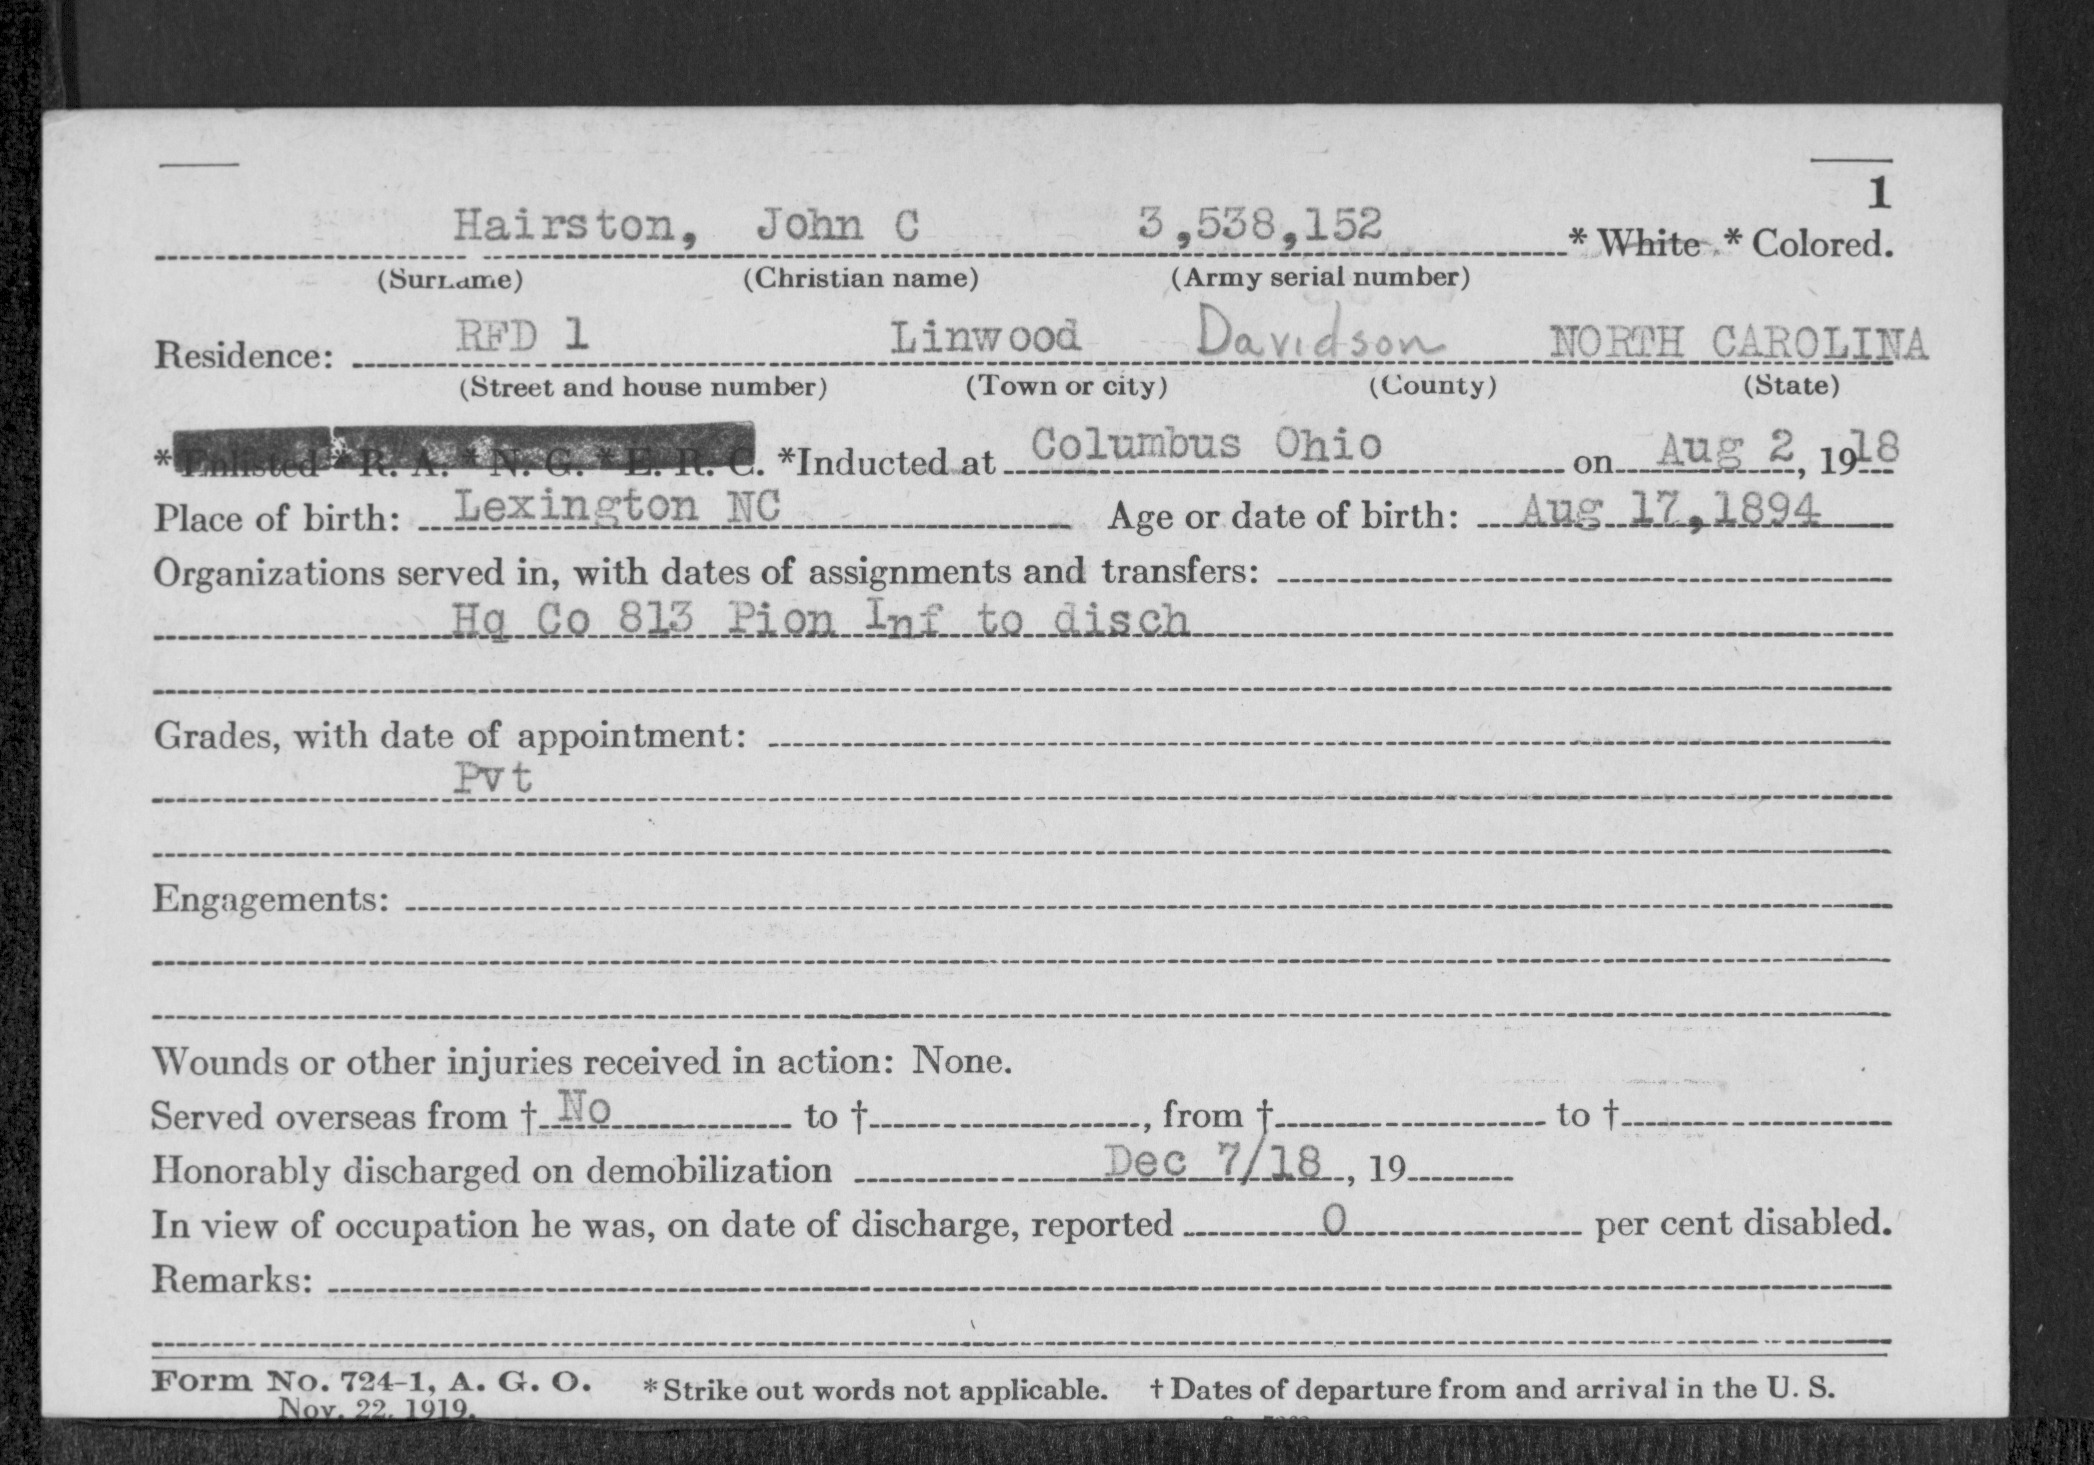 1
Hairston, John C 3,538,152 * White * Colored.
(Surname) (Christian name) (Army serial number)
Residence: RFD 1 Linwood Davidson NORTH CAROLINA
(Street and house number) (Town or city) (County) (State)
* Enlisted * R. A. * N. G. * E. R. C. *Inducted at Columbus Ohio on Aug 2, 1918
Place of birth: Lexington NC Age or date of birth: Aug 17,1894
Organizations served in, with dates of assignments and transfers:
Hq Co 813 Pion Inf to disch
Grades, with date of appointment:
Pvt
Engagements:
Wounds or other injuries received in action: None.
Served overseas from † No to †, from † to †
Honorably discharged on demobilization Dec 7/18, 19
In view of occupation he was, on date of discharge, reported 0 per cent disabled.
Remarks:
Form No. 724-1, A. G. O. *Strike out words not applicable. † Dates of departure from and arrival in the U. S.
Nov. 22, 1919.